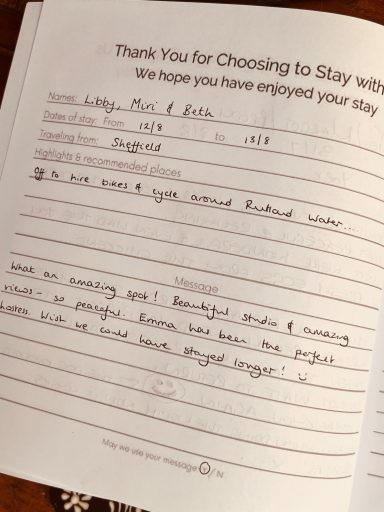 Thank You for Choosing to Stay with
We hope you have enjoyed your stay
Names: Libby, Miri & Beth
Dates of stay: From 12/8 to 13/8
Traveling from: Sheffield
Highlights & recommended places
Off to hire bikes & cycle around Rutland Water...
Message
What an amazing spot! Beautiful studio & amazing
views - so peaceful. Emma has been the perfect
hostess. Wish we could have stayed longer!
May we use your message Y / N